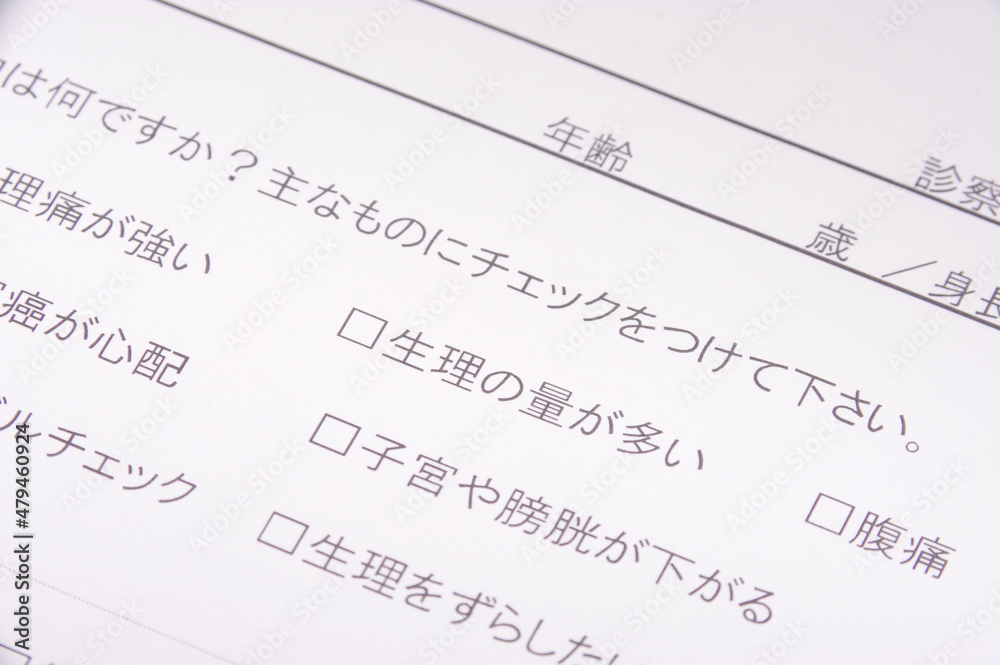 年齢 歳 ／身長
診察
は何ですか？主なものにチェックをつけて下さい。
理痛が強い □生理の量が多い □腹痛
癌が心配 □子宮や膀胱が下がる
ルチェック □生理をずらした
Adobe Stock | #479460924